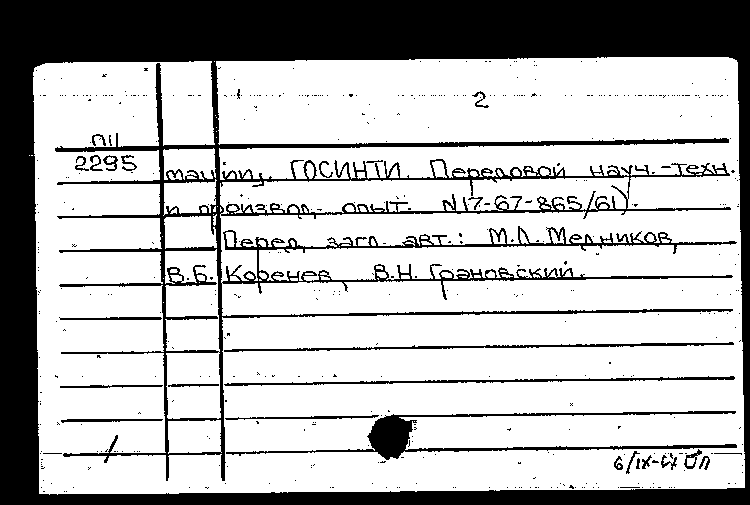 2
ПII
2295
машин, ГОСИНТИ. Передовой науч.-техн.
и производ. опыт. N17-67-865/61).
Перед загл. авт.: М.Л. Медников,
В.Б. Коренев, В.Н. Грановский.